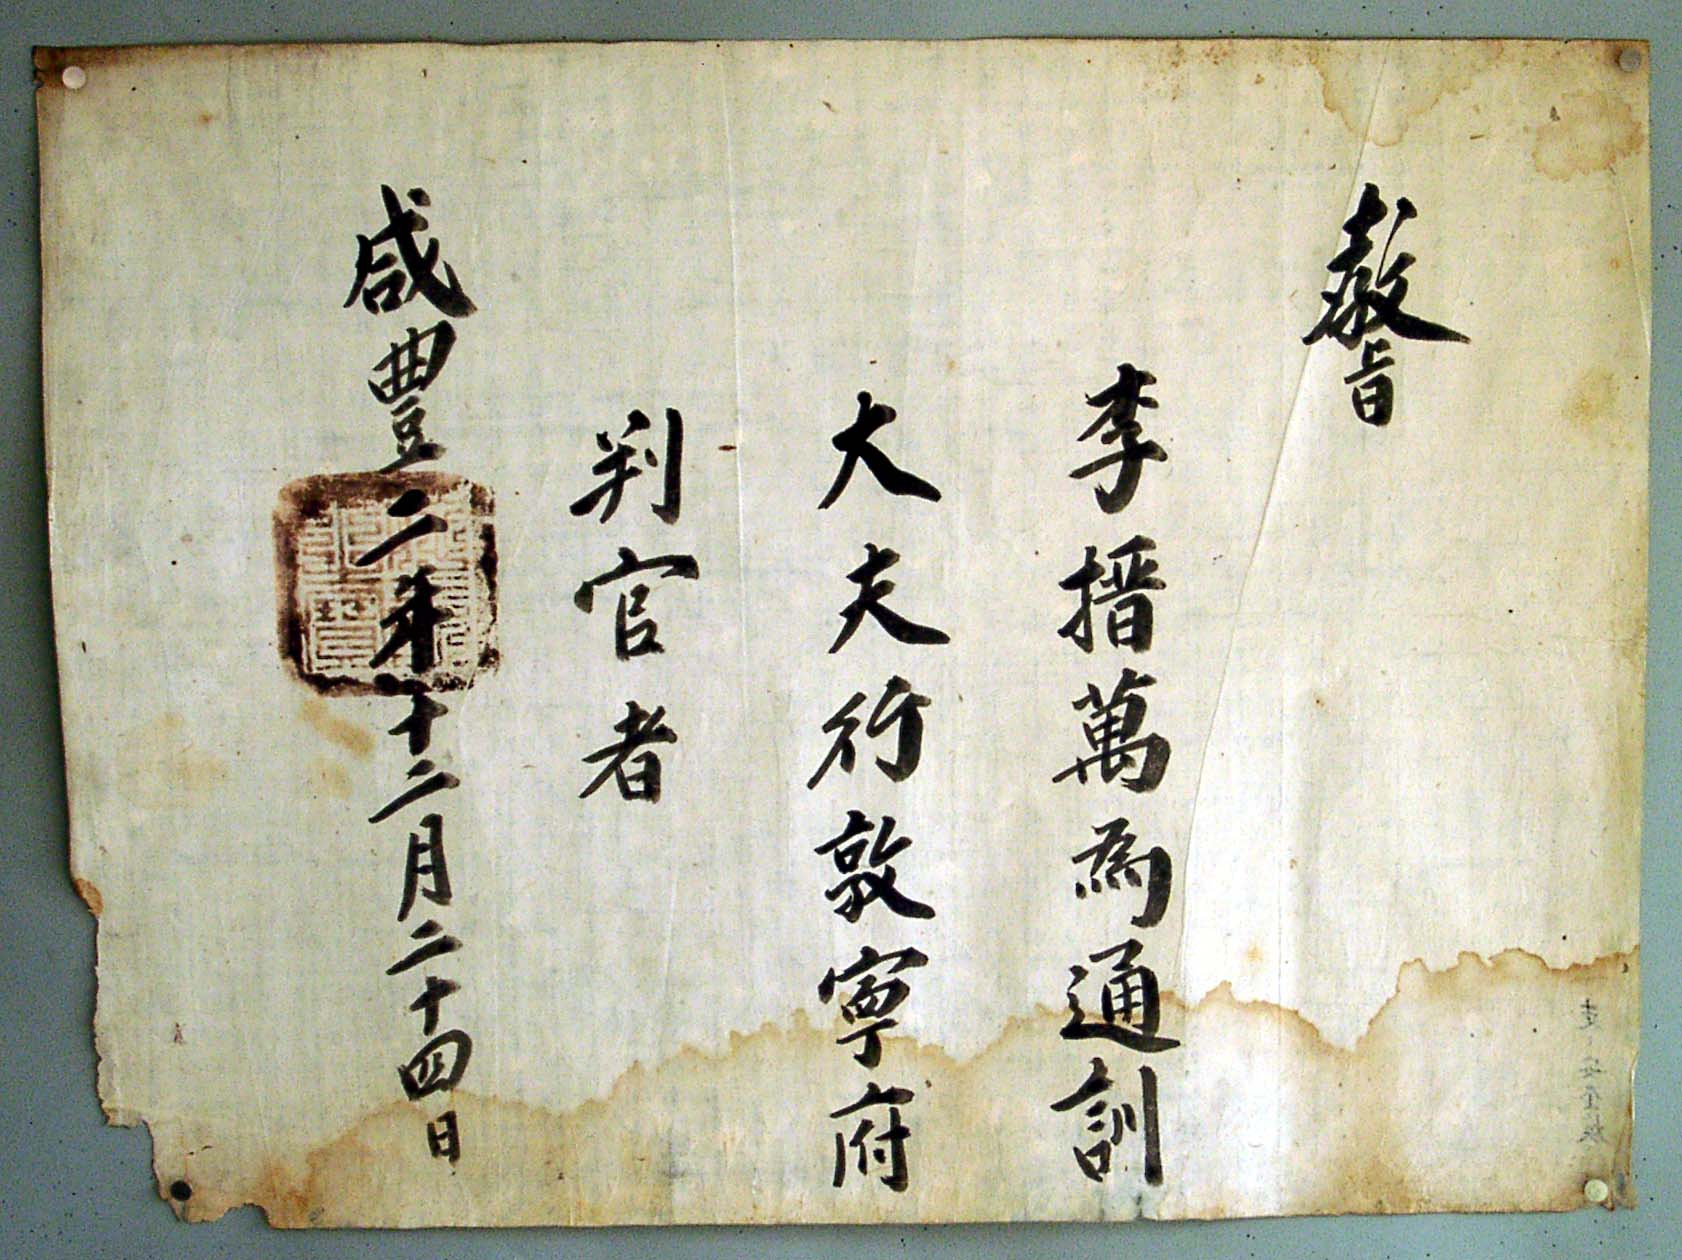 教旨
李搢萬爲通訓
大夫行敦寧府
判官者
咸豐二年十二月二十四日